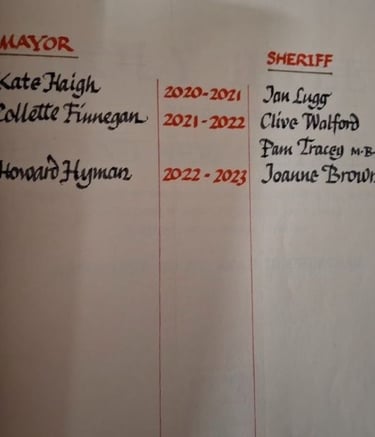 MAYOR SHERIFF
Kate Haigh 2020-2021 Jan Lugg
Collette Finnegan 2021-2022 Clive Walford
Pam Tracey M.B.
Howard Hyman 2022-2023 Joanne Brown